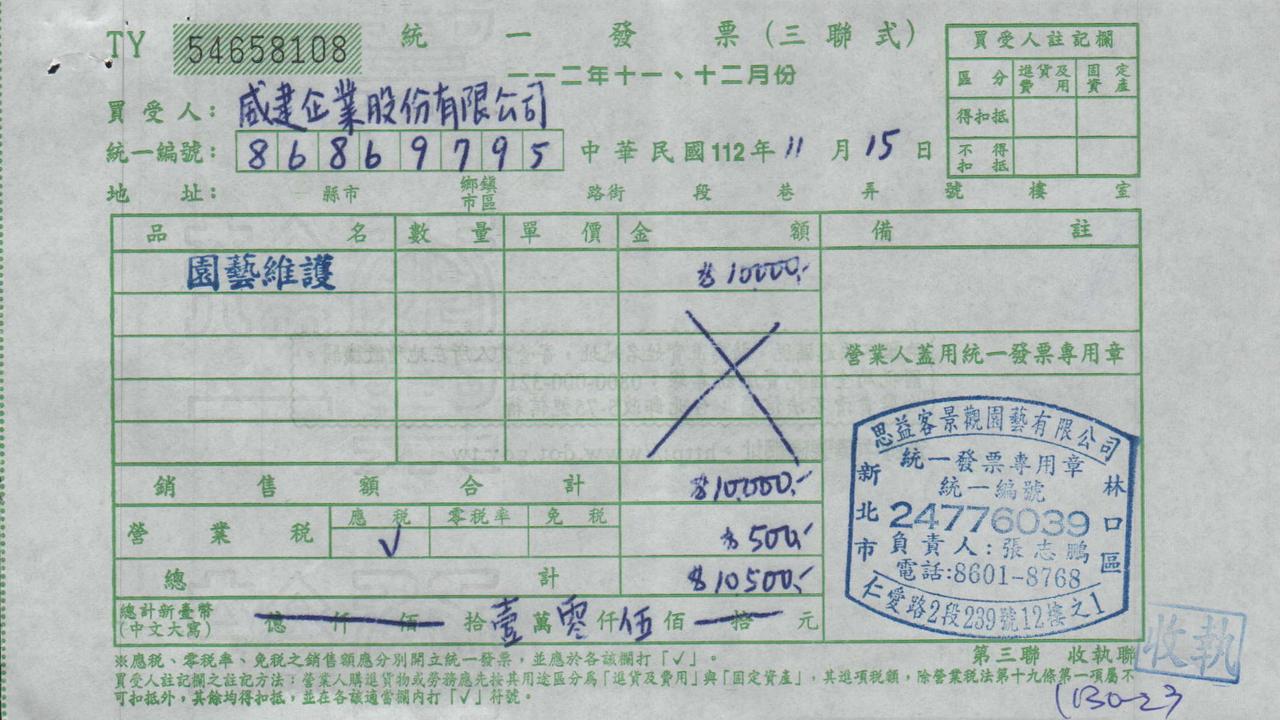 TY 54658108 統一發票(三聯式)
一一二年十一、十二月份
買受人註記欄
區分 進貨及費用 固定資產
得扣抵
不得扣抵
買受人: 威建企業股份有限公司
統一編號: 86869795 中華民國112年11月15日
地址: 縣市 鄉鎮市區 路街 段 巷 弄 號 樓 室
品名 數量 單價 金額 備註
園藝維護 $10,000.-
營業人蓋用統一發票專用章
銷售額合計 $10,000.-
營業稅 應稅 零稅率 免稅
√ $500.-
總計 $10,500.-
總計新臺幣(中文大寫) 億仟佰拾壹萬零仟伍佰拾元
思益客景觀園藝有限公司
統一發票專用章
統一編號
24776039
負責人:張志鵬
電話:8601-8768
新北市
林口區
仁愛路2段239號12樓之1
收執
※應稅、零稅率、免稅之銷售額應分別開立統一發票,並應於各該欄打「√」。
第三聯 收執聯
買受人註記欄之註記方法:營業人購進貨物或勞務應先按其用途區分為「進貨及費用」與「固定資產」,其進項稅額,除營業稅法第十九條第一項屬不
可扣抵外,其餘均得扣抵,並在各該適當欄內打「√」符號。